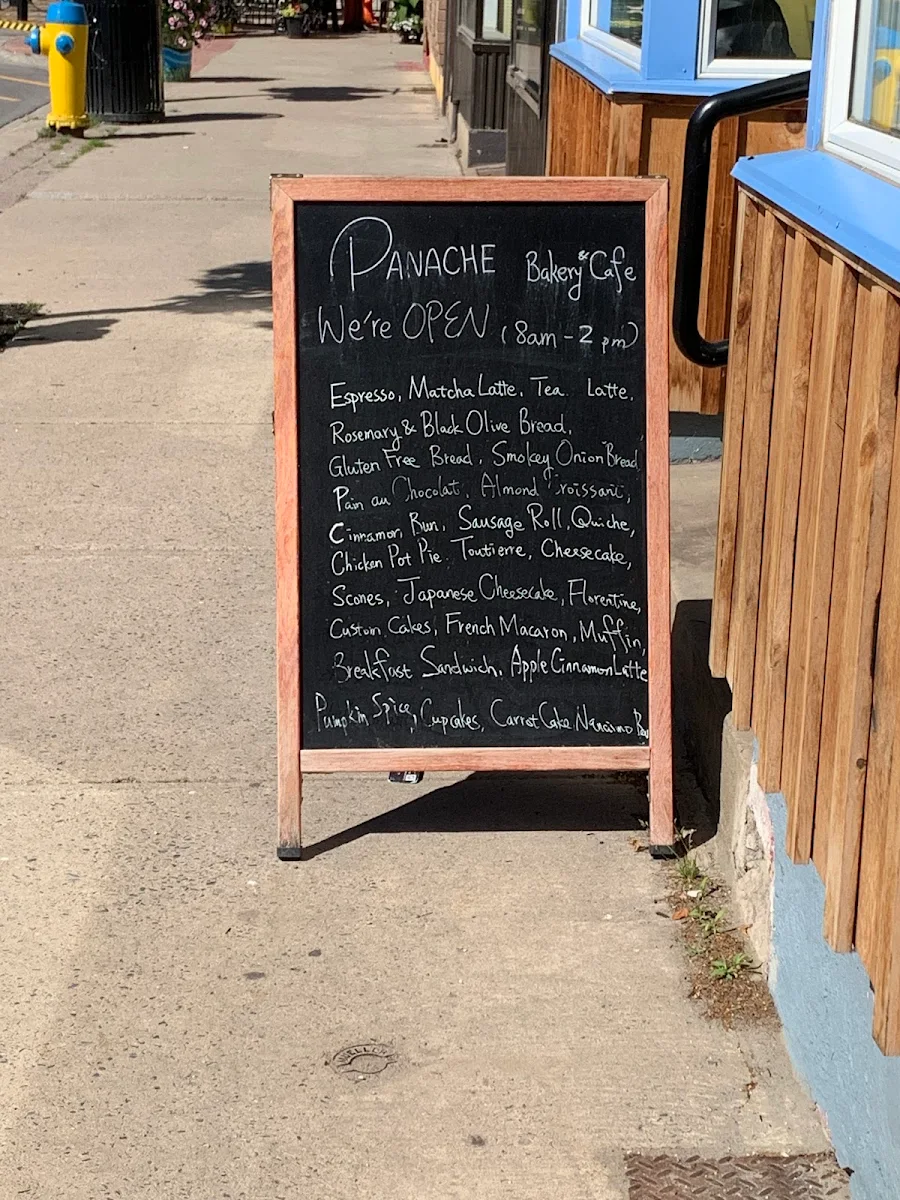 PANACHE Bakery & Cafe
We're OPEN (8am - 2 pm)
Espresso, Matcha Latte, Tea Latte,
Rosemary & Black Olive Bread,
Gluten Free Bread, Smokey Onion Bread
Pain au Chocolat, Almond Croissant,
Cinnamon Bun, Sausage Roll, Quiche,
Chicken Pot Pie, Toutierre, Cheesecake,
Scones, Japanese Cheesecake, Florentine,
Custom Cakes, French Macaron, Muffin,
Breakfast Sandwich, Apple Cinnamon Latte
Pumpkin Spice, Cupcakes, Carrot Cake, Nanaimo